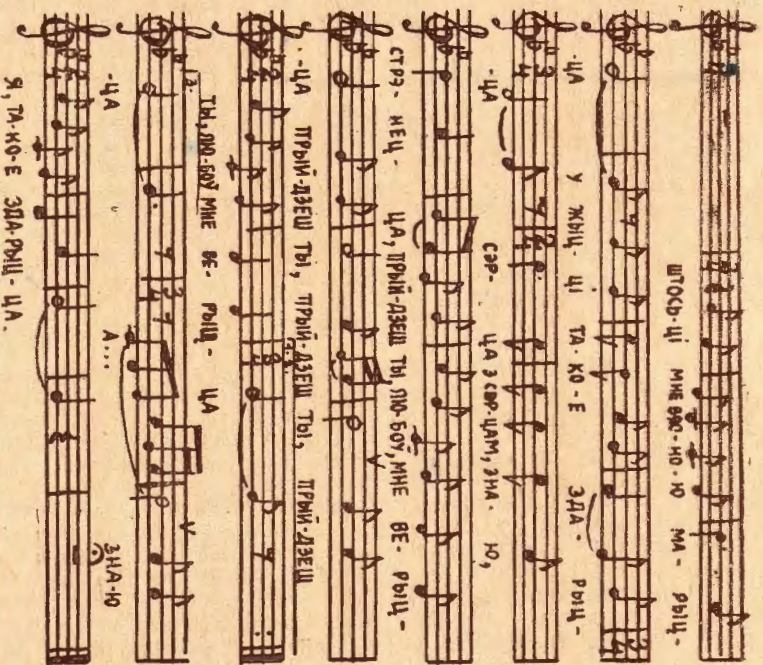 ШТОСЬ-ЦІ МНЕ ВЯС-НО-Ю МА- РЫЦ-
-ЦА У ЖЫЦ-ЦІ ТА-КО-Е ЗДА- РЫЦ-
-ЦА СЭР- ЦА З СЭР-ЦАМ, ЗНА- Ю,
СТРЭ- НЕЦ- ЦА, ПРЫЙ-ДЗЕШ ТЫ, ЛЮ-БОЎ, МНЕ ВЕ- РЫЦ-
-ЦА ПРЫЙ-ДЗЕШ ТЫ, ПРЫЙ-ДЗЕШ ТЫ, ПРЫЙ-ДЗЕШ
ТЫ, ЛЮ-БОЎ МНЕ ВЕ- РЫЦ- ЦА
-ЦА А... ЗНА-Ю
Я, ТА-КО-Е ЗДА-РЫЦ-ЦА.